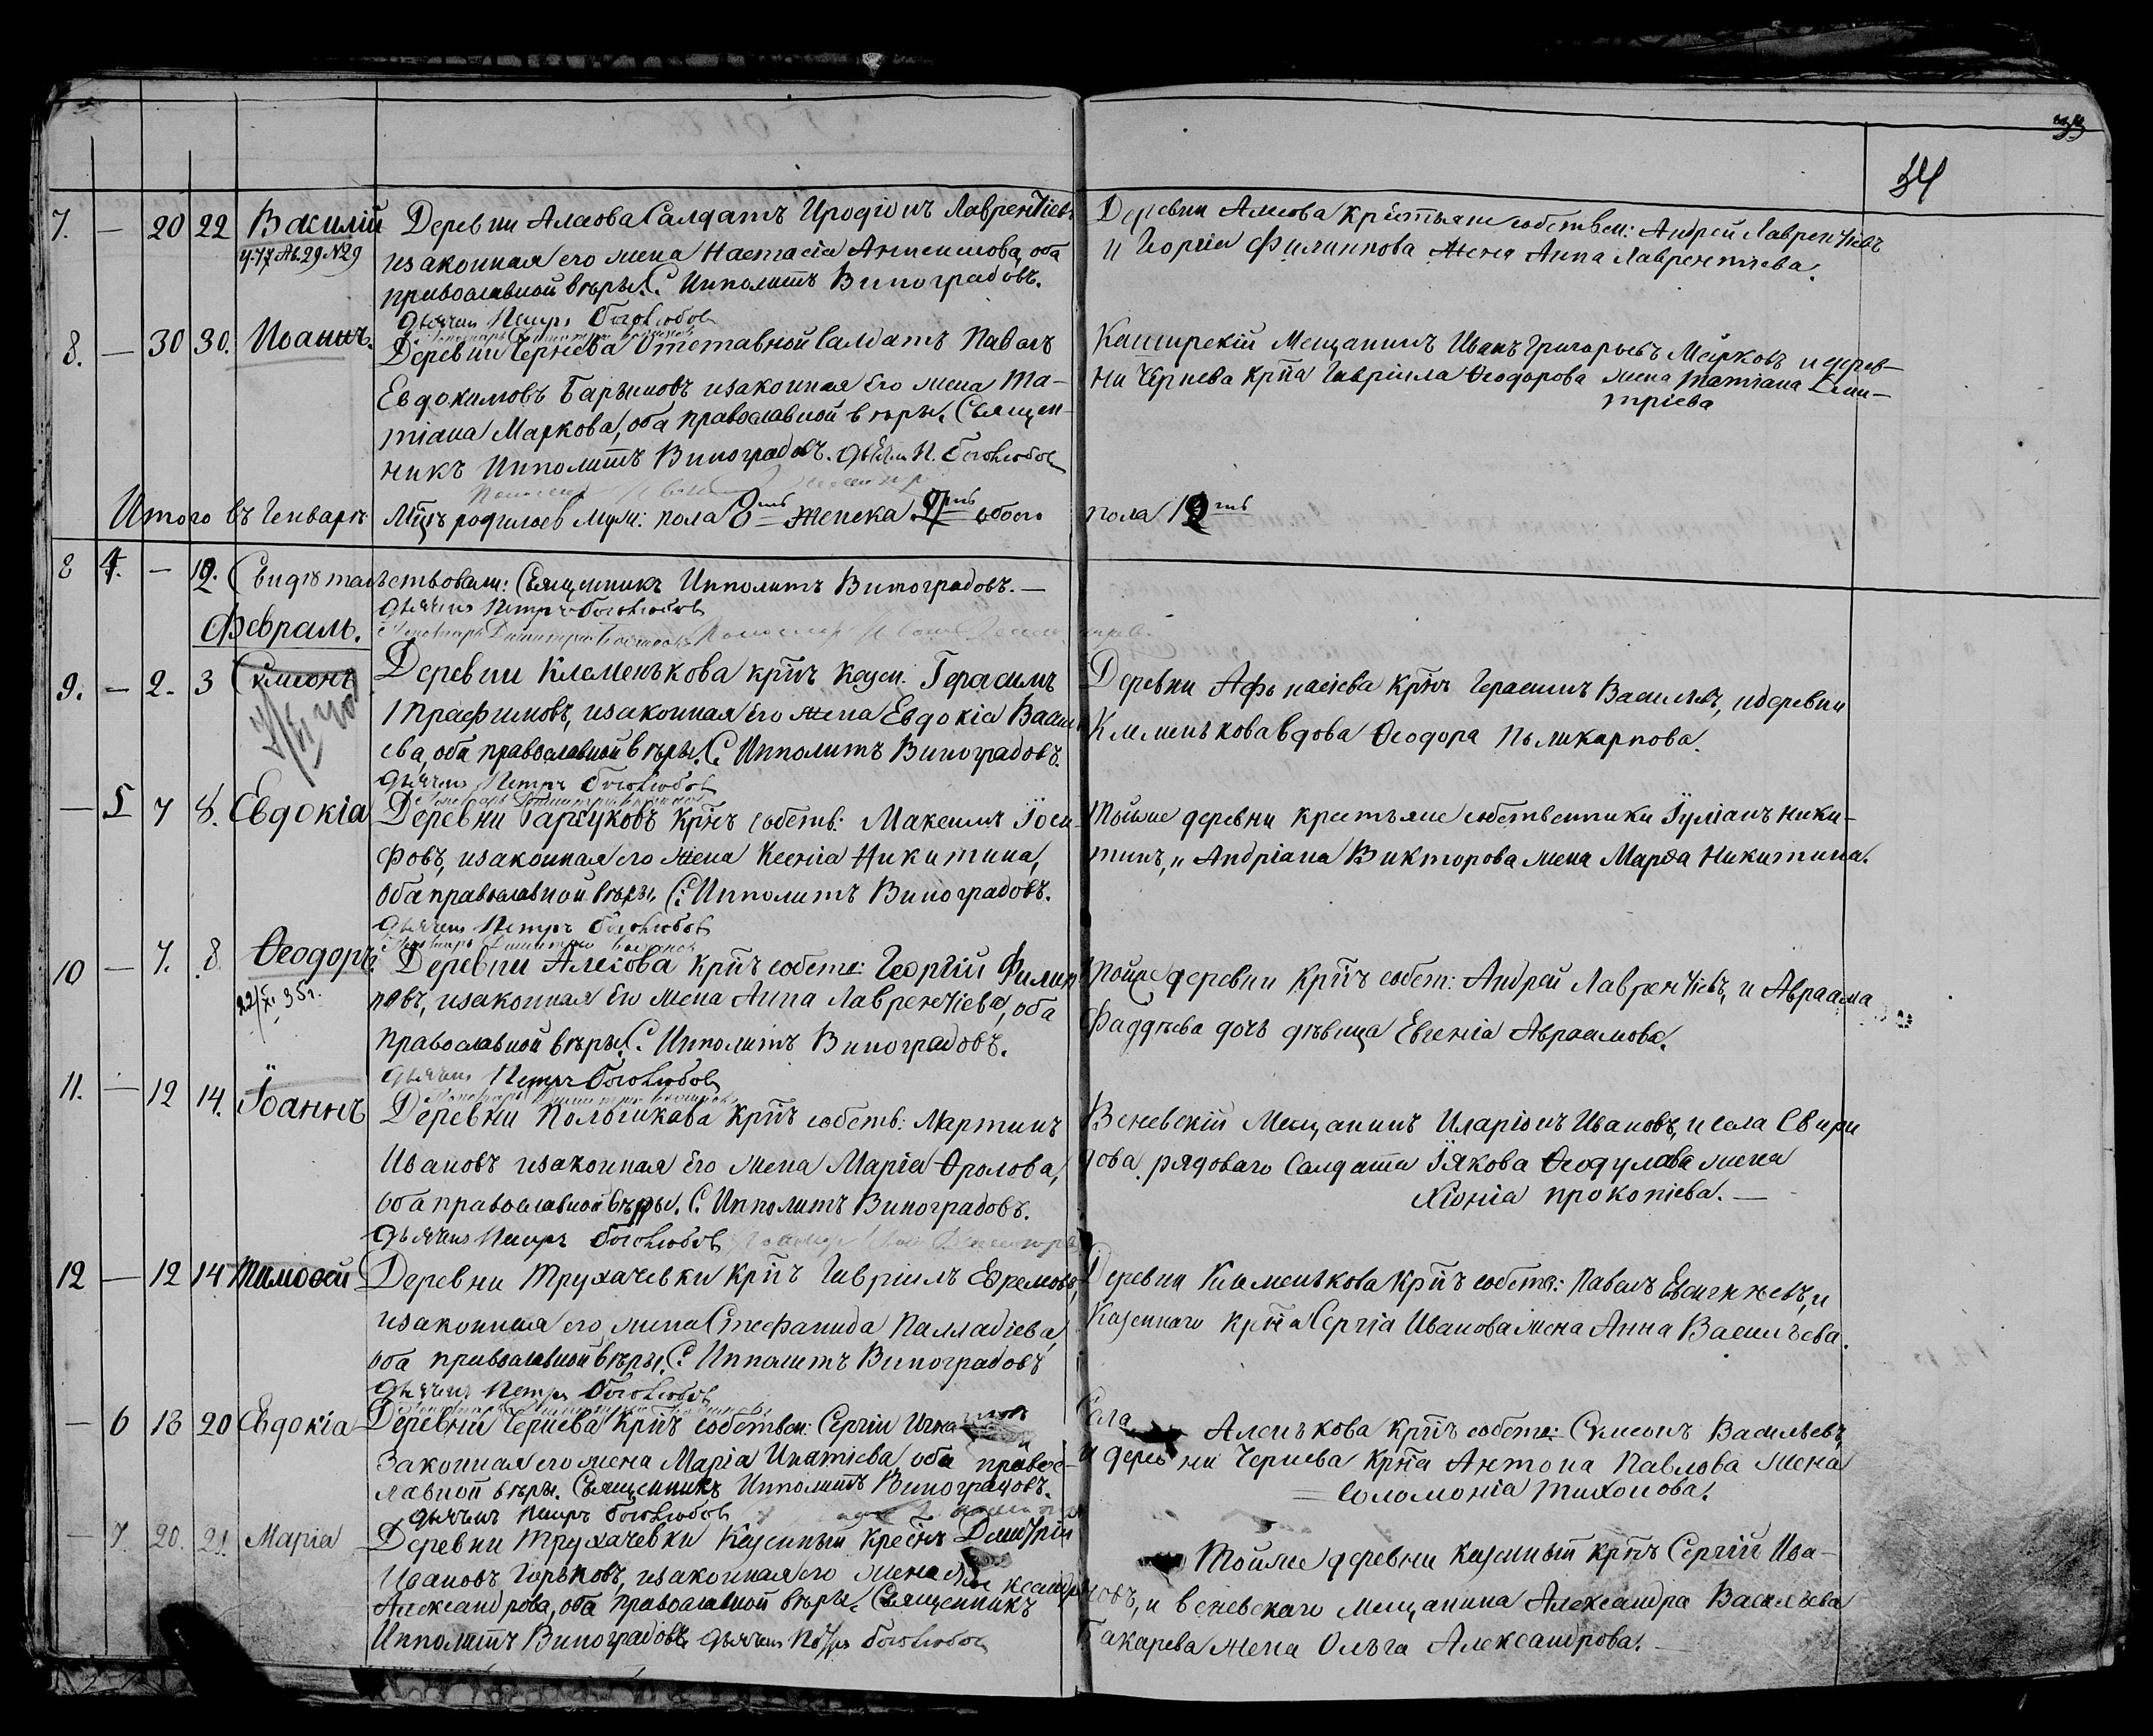 34
7. — 20 22 Василій Деревни Алесова Салдатъ Иродіонъ Лаврентіевъ
изаконная его жена Настасія Анисимова, оба
православной вѣры. С. Ипполитъ Виноградовъ.
Дьячекъ Петръ Боголюбовъ
Деревни Алесова крестьяне собствен: Андрей Лаврентіевъ
и Георгія Филиппова жена Анна Лаврентіева.
8. — 30 30. Иоаннъ. Деревни Чернева Отставной Салдатъ Павелъ
Евдокимовъ Барыковъ изаконная его жена Та-
тіана Маркова, оба православной вѣры. Священ-
никъ Ипполитъ Виноградовъ. Дьячекъ П. Боголюбовъ
Каширскій Мещанинъ Иванъ Григорьевъ Марковъ и дерев-
ни Чернева Крна Гавріила Ѳеодорова жена Татіана Дми-
тріева
Итого въ Генварѣ Мцѣ родилось муж: пола 8мь женска 4 обоего пола 12ть
8 4. — 12. Свидѣтельствовали: Священникъ Ипполитъ Виноградовъ. —
Дьячекъ Петръ Боголюбовъ
Февраль.
9. — 2. 3 Сѵмеонъ Деревни Клеменькова крнъ казен. Герасимъ
Трафимовъ, изаконная его жена Евдокія Васил
ева, оба православной вѣры. С. Ипполитъ Виноградовъ.
Дьячекъ Петръ Боголюбовъ
Деревни Афонасіева Крнъ Герасимъ Васильевъ, идеревни
Клеменькова вдова Ѳеодора Поликарпова.
— 5 7 8. Евдокіа Деревни Гарсуковъ Крнъ собств: Максимъ Іоси-
фовъ, изаконная его жена Ксенія Никитина,
оба православной вѣры. С. Ипполитъ Виноградовъ.
Дьячекъ Петръ Боголюбовъ
Тойже деревни крестьяне собственники Іуліанъ Ники-
тинъ, и Андріана Викторова жена Марѳа Никитина.
10 — 7. 8 Ѳеодоръ. Деревни Алесова крнъ собств: Георгій Филип
повъ, изаконная его жена Анна Лаврентіева, оба
Православной вѣры. С. Ипполитъ Виноградовъ.
Дьячекъ Петръ Боголюбовъ
Тойже деревни Крнъ собст: Андрей Лаврентіевъ, и Авраама
Фаддѣева дочь дѣвица Евгенія Авраамова.
11. — 12 14. Іоаннъ Деревни Пологикова Крнъ собств: Мартинъ
Ивановъ изаконная его жена Маріа Ѳролова,
оба православной вѣры. С. Ипполитъ Виноградовъ.
Дьячекъ Петръ Боголюбовъ
Веневскій Мещанинъ Иларіонъ Ивановъ, и села Свири
дова рядоваго Салдата Іякова Ѳеодулова жена
Хіонія Прокопіева. —
12 — 12 14 Тимоѳей Деревни Трухачевки Крнъ Гавріилъ Ефремовъ,
изаконная его жена Стефанида Палладіева,
оба православной вѣры. С. Ипполитъ Виноградовъ
Дьячекъ Петръ Боголюбовъ
Деревни Клеменькова Крнъ собств: Павелъ Евсигнѣевъ, и
Казеннаго Крна Сергія Иванова жена Анна Васильева.
— 6 18 20 Евдокіа Деревни Чернева Крнъ собствен: Сергій Игна
Законная его жена Маріа Ипатіева, оба правос-
лавной вѣры. Священникъ Ипполитъ Виноградовъ.
Дьячекъ Петръ Боголюбовъ
Села Аленькова Крнъ собств: Сѵмеонъ Васильевъ,
и деревни Чернева Крна Антона Павлова жена
Соломонія Тихонова.
— 7. 20. 21. Маріа Деревни Трухачевки Казенный Крестнъ Димитрій
Ивановъ Горьковъ, изаконная его жена
Александрова, оба православной вѣры. Священникъ
Ипполитъ Виноградовъ Дьячекъ Петръ Боголюбовъ
Тойже деревни казенный крнъ Сергій Ива-
новъ, и веневскаго мещанина Александра Васильева
Бакарева жена Ольга Александрова. —